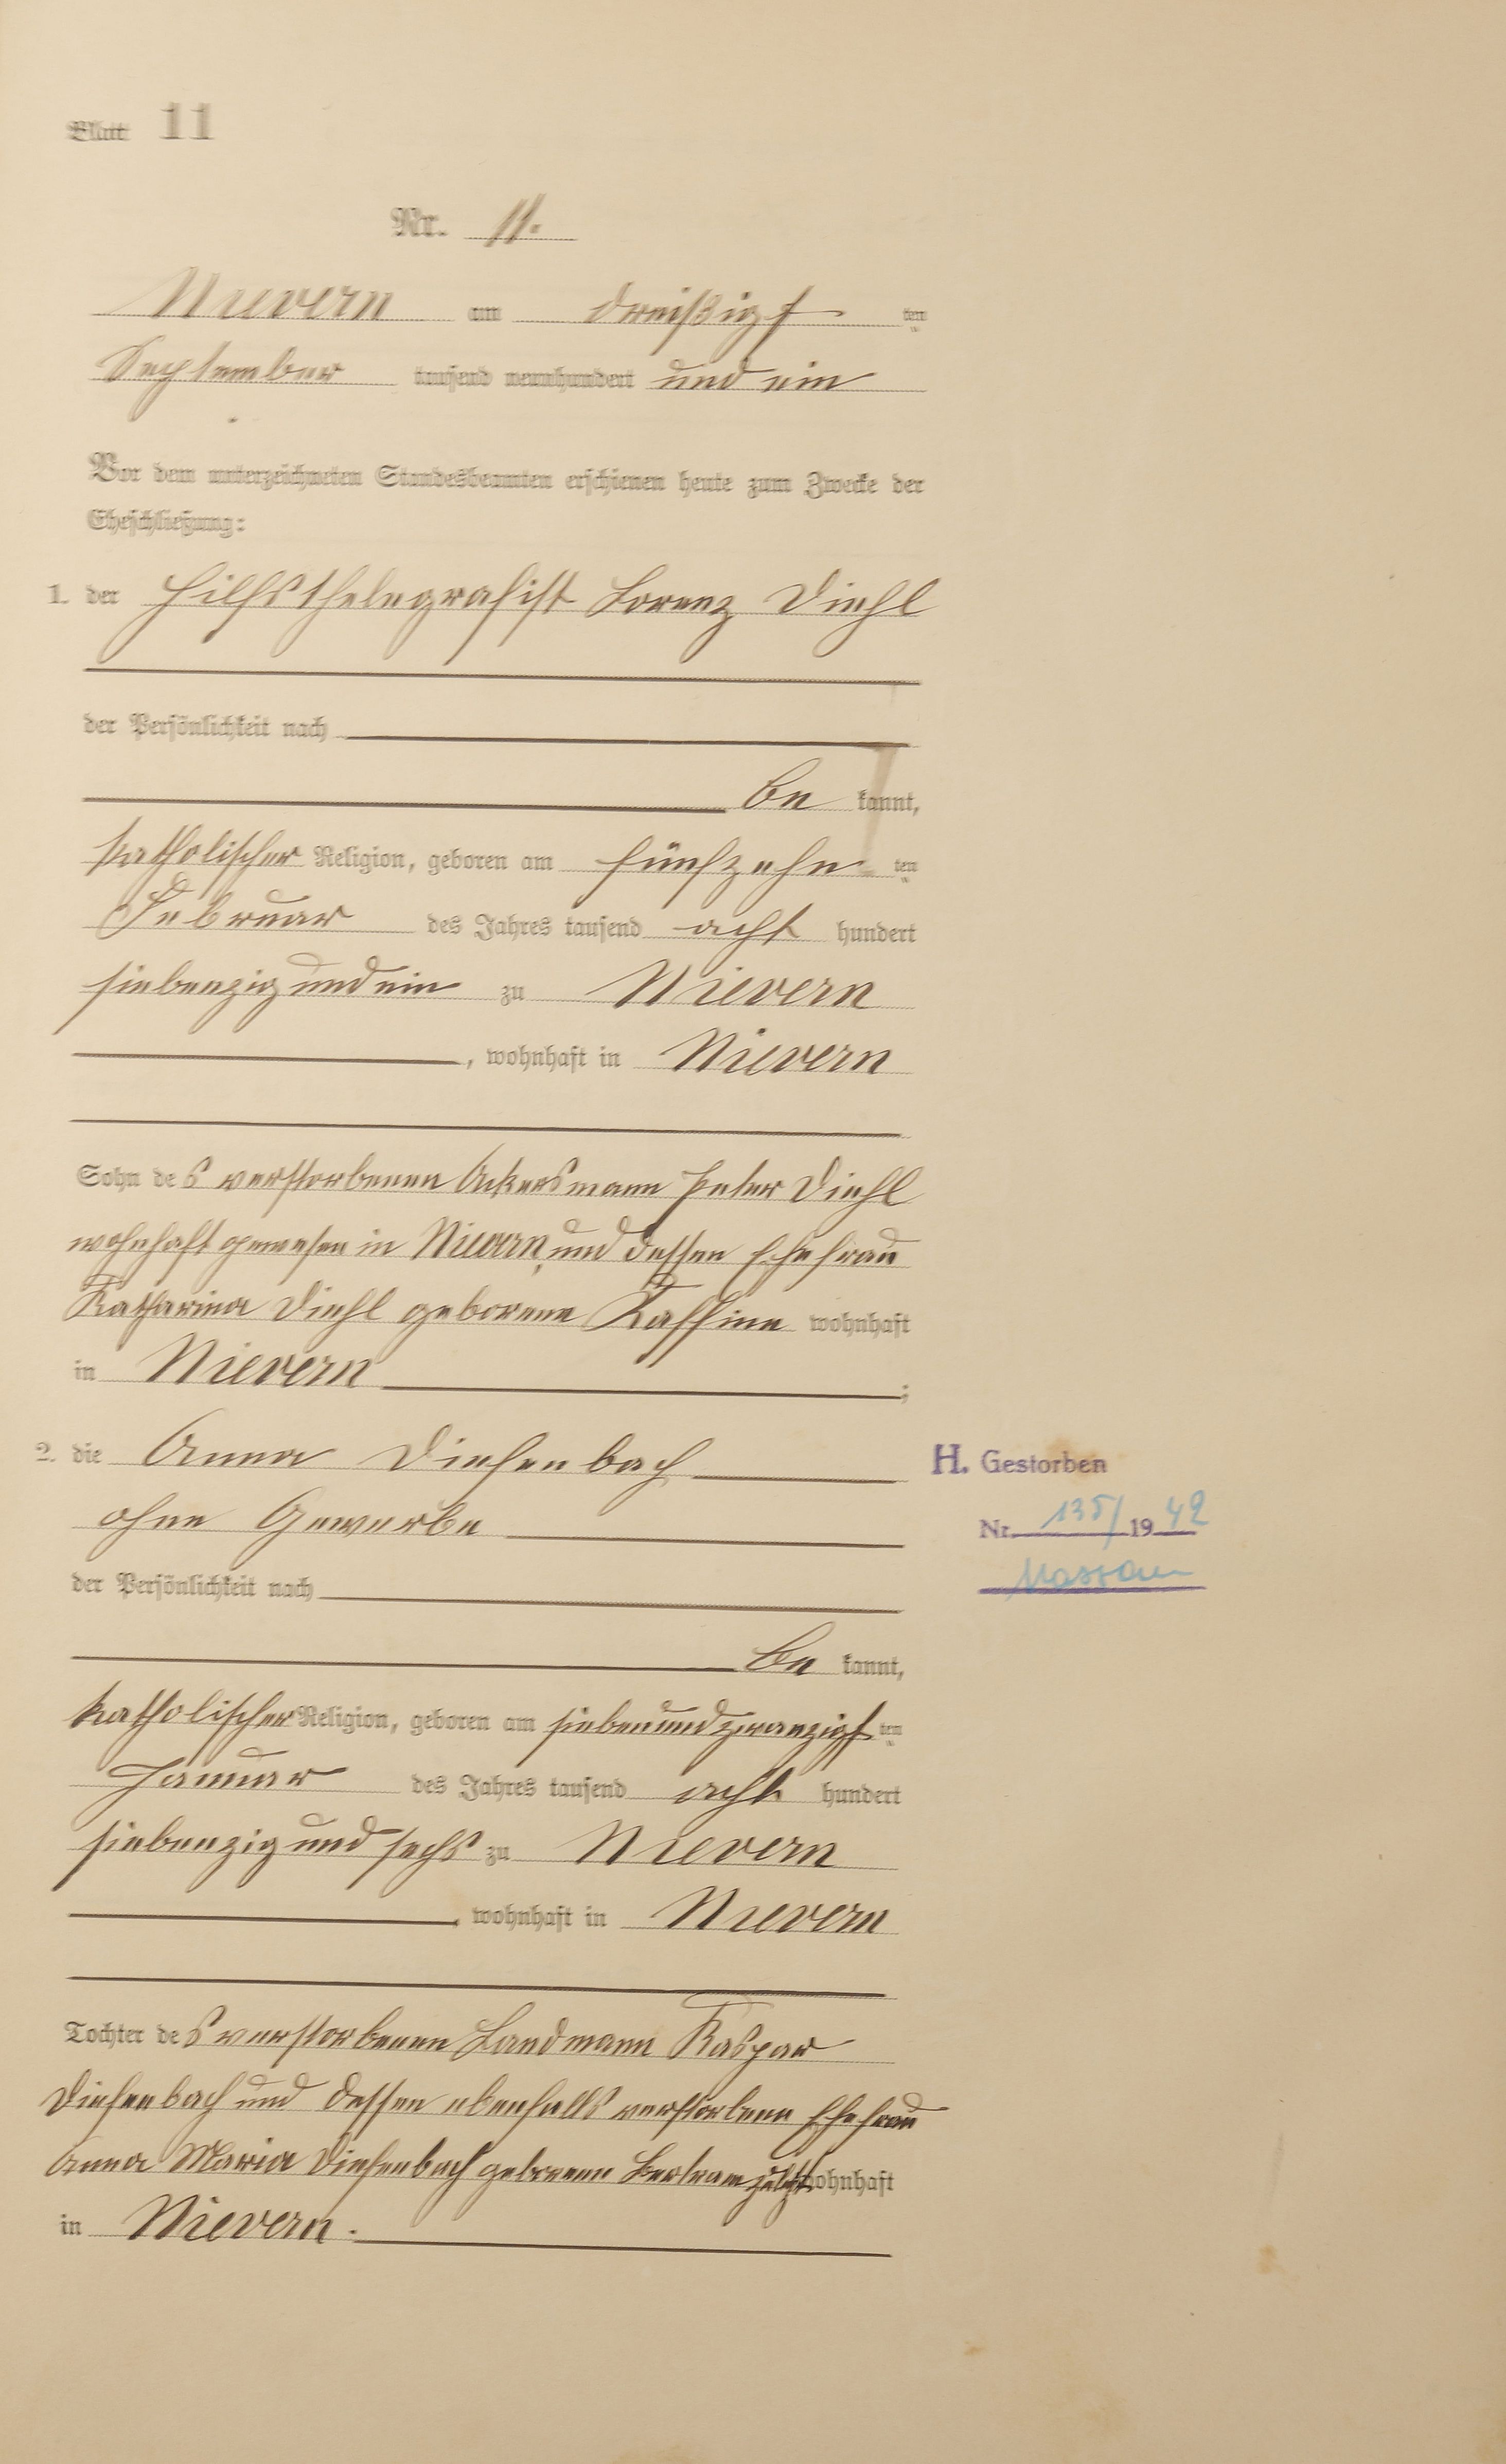 Blatt 11
Nr. 11.
Nievern am dreißigs ten
September tausend neunhundert und ein
Vor dem unterzeichneten Standesbeamten erschienen heute zum Zwecke der
Eheschließung:
1. der Hilfsthelegrafist Lorenz Diehl
der Persönlichkeit nach
be kannt,
katholischer Religion, geboren am fünfzehn ten
Februar des Jahres tausend acht hundert
siebenzig und ein zu Nievern
, wohnhaft in Nievern
Sohn des verstorbenen Ackersmann Peter Diehl
wohnhaft gewesen in Nievern und dessen Ehefrau
Katharina Diehl geborene wohnhaft
in Nievern ;
2. die Anna Diefenbach
ohne Gewerbe
der Persönlichkeit nach
be kannt,
katholischer Religion, geboren am siebenundzwanzigs ten
Januar des Jahres tausend acht hundert
siebenzig und sechs zu Nievern
, wohnhaft in Nievern
Tochter des verstorbenen Landmann Kaspar
Diefenbach und dessen ebenfalls verstorbene Ehefrau
Anna Maria Diefenbach geborene Bertram zuletzt wohnhaft
in Nievern.
H. Gestorben
Nr. 135/ 1942
Nassau